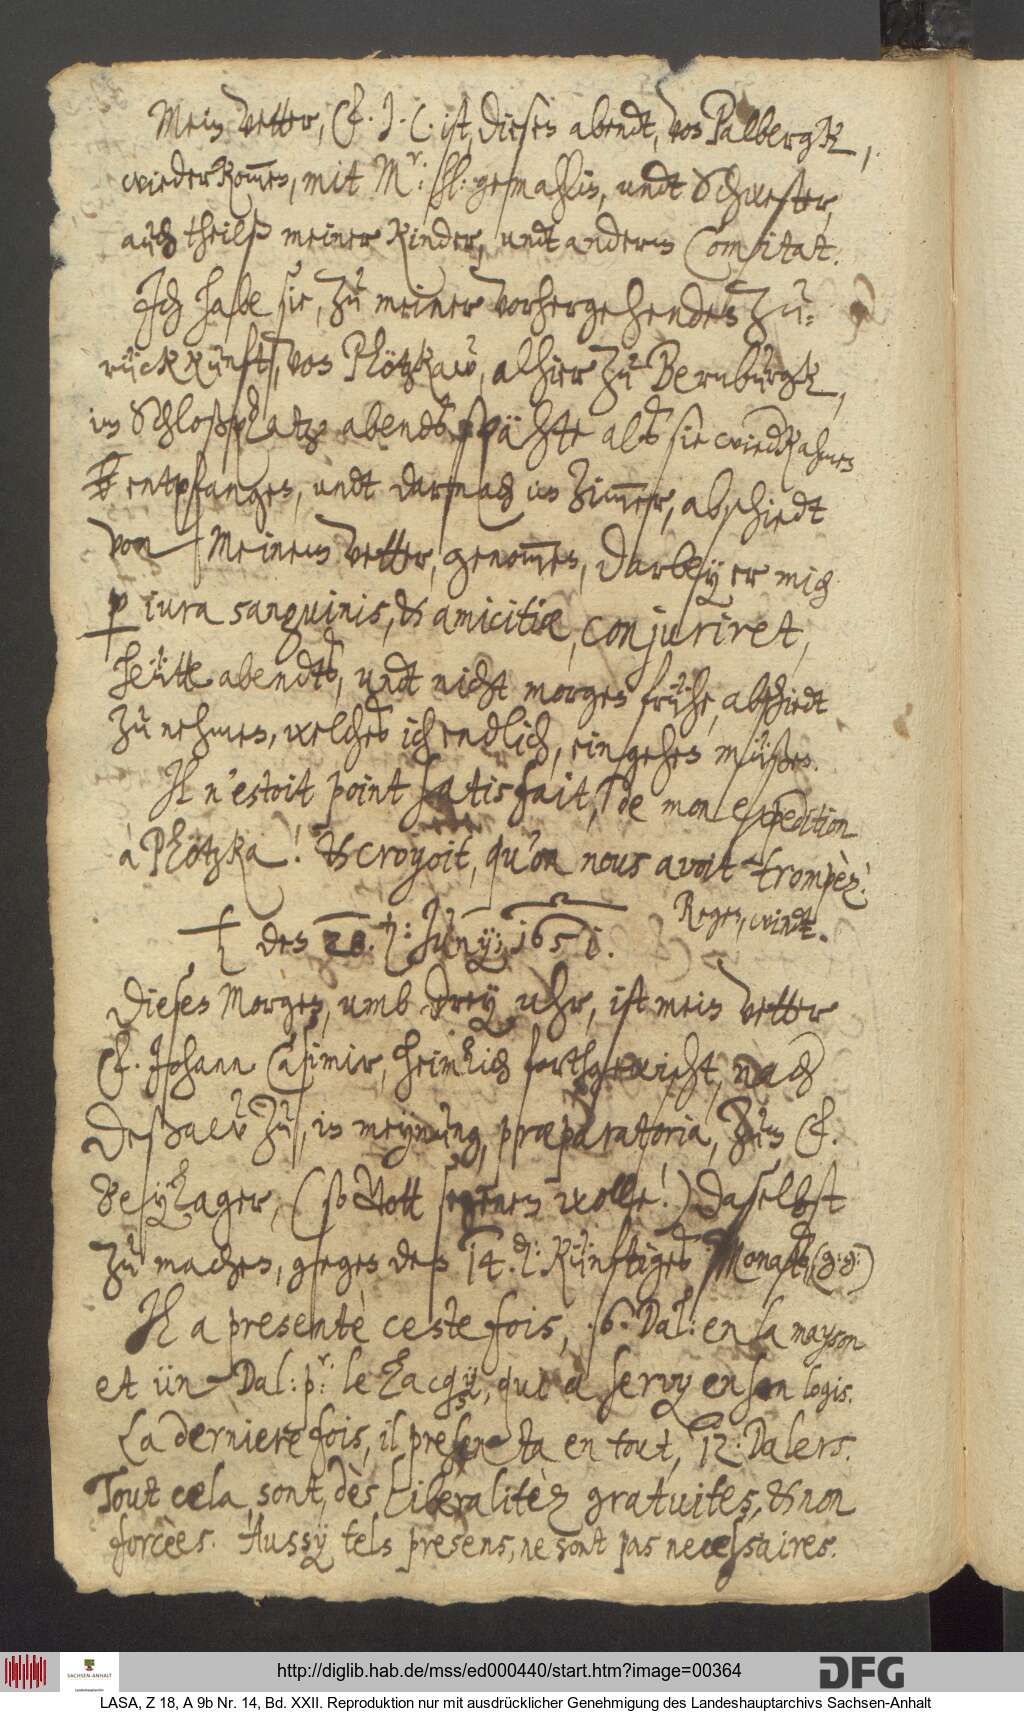 Mein Vetter, F. J. C. ist, diesen abendt, von Palbergk,
wiederkommen, mit Mr: hl: gemahlin, undt Schwester,
auch theilß meiner Kinder, undt anderm Comitat.
Jch habe sie, zu meiner vorhergehenden zu-
rückkunft, von Plötzkaw, alhier zu Bernburgk,
im Schloßplatz abends spähte als sie wied'kahmen
entpfangen, undt darnach im Zimmer, abschiedt
von Meinem Vetter, genommen, darbey er mich
p iura sanguinis, & amicitiæ, conjuriret,
heütte abendts, undt nicht morgen frühe, abschiedt
zu nehmen, welches ich endlich, eingehen müßen.
Il n'estoit point satisfait, de mon expedition
à Plötzka! & croyoit, qu'on nous avoit trompèz!
Regen, windt.
♄ den 28. : Junij; 1651.
Diesen Morgen, umb drey uhr, ist mein Vetter
F. Johann Casimir, heimlich forthgewischt, nach
Deßaw zu, in meynung, præparatoria, zum F.
Beylager, (so Gott segenen wolle!) daselbst
zu machen, gegen den 14. d: Künftiges Monats, (g: g:)
Il a presentè ceste fois, 16. Dal: en la mayson
et ün Dal: pr: le Lacquay, qui a servy en son logis.
La derniere fois, il presenta en tout, 12. Dalers.
Tout cela, sont, dès Liberalitèz gratuites, & non
forcèes. Aussy tels presens, ne sont pas necessaires.
http://diglib.hab.de/mss/ed000440/start.htm?image=00364
DFG
SACHSEN-ANHALT
LASA, Z 18, A 9b Nr. 14, Bd. XXII. Reproduktion nur mit ausdrücklicher Genehmigung des Landeshauptarchivs Sachsen-Anhalt